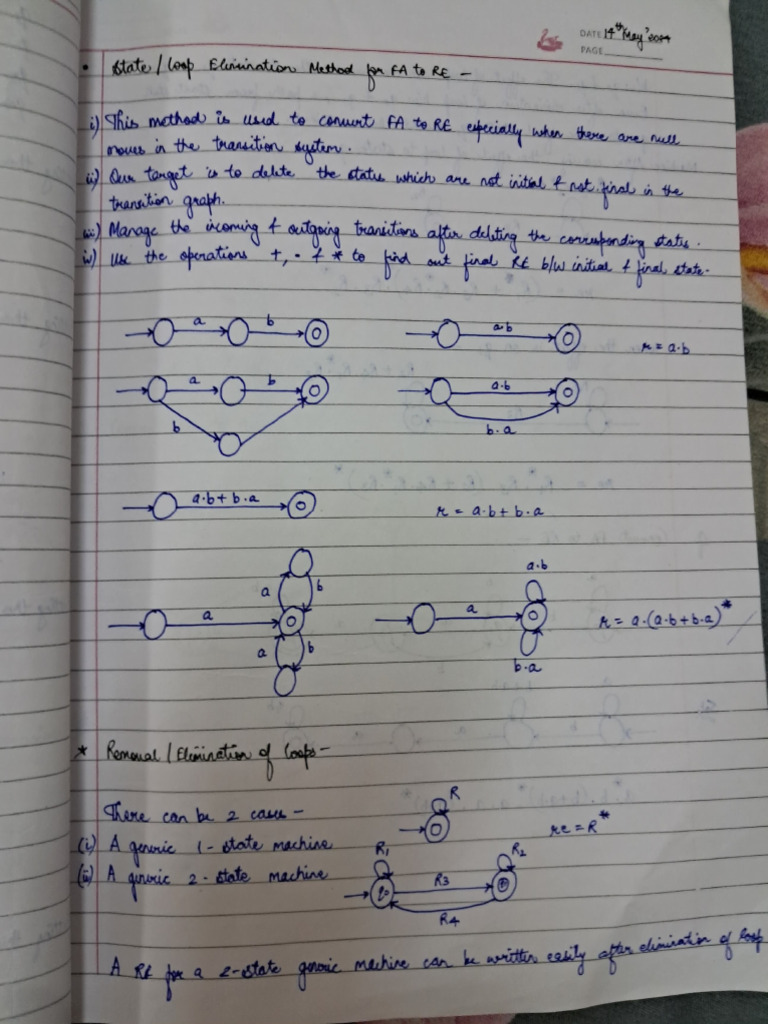 DATE 14th May' 2024
PAGE
• State / Loop Elimination Method for FA to RE -
i) This method is used to convert FA to RE especially when there are null
moves in the transition system.
ii) Our target is to delete the states which are not initial & not final in the
transition graph.
iii) Manage the incoming & outgoing transitions after deleting the corresponding states.
iv) Use the operations +, · & * to find out final RE b/w initial & final state.
a b a·b r = a·b
a b a·b
b b·a
a·b + b·a r = a·b + b·a
a b a·b
a a r = a·(a·b + b·a)*
a b b·a
* Removal / Elimination of Loops -
There can be 2 cases - R
(i) A generic 1- state machine re = R*
R1 R2
(ii) A generic 2- state machine R3
R4
A RE for a 2-state generic machine can be written easily after elimination of loop